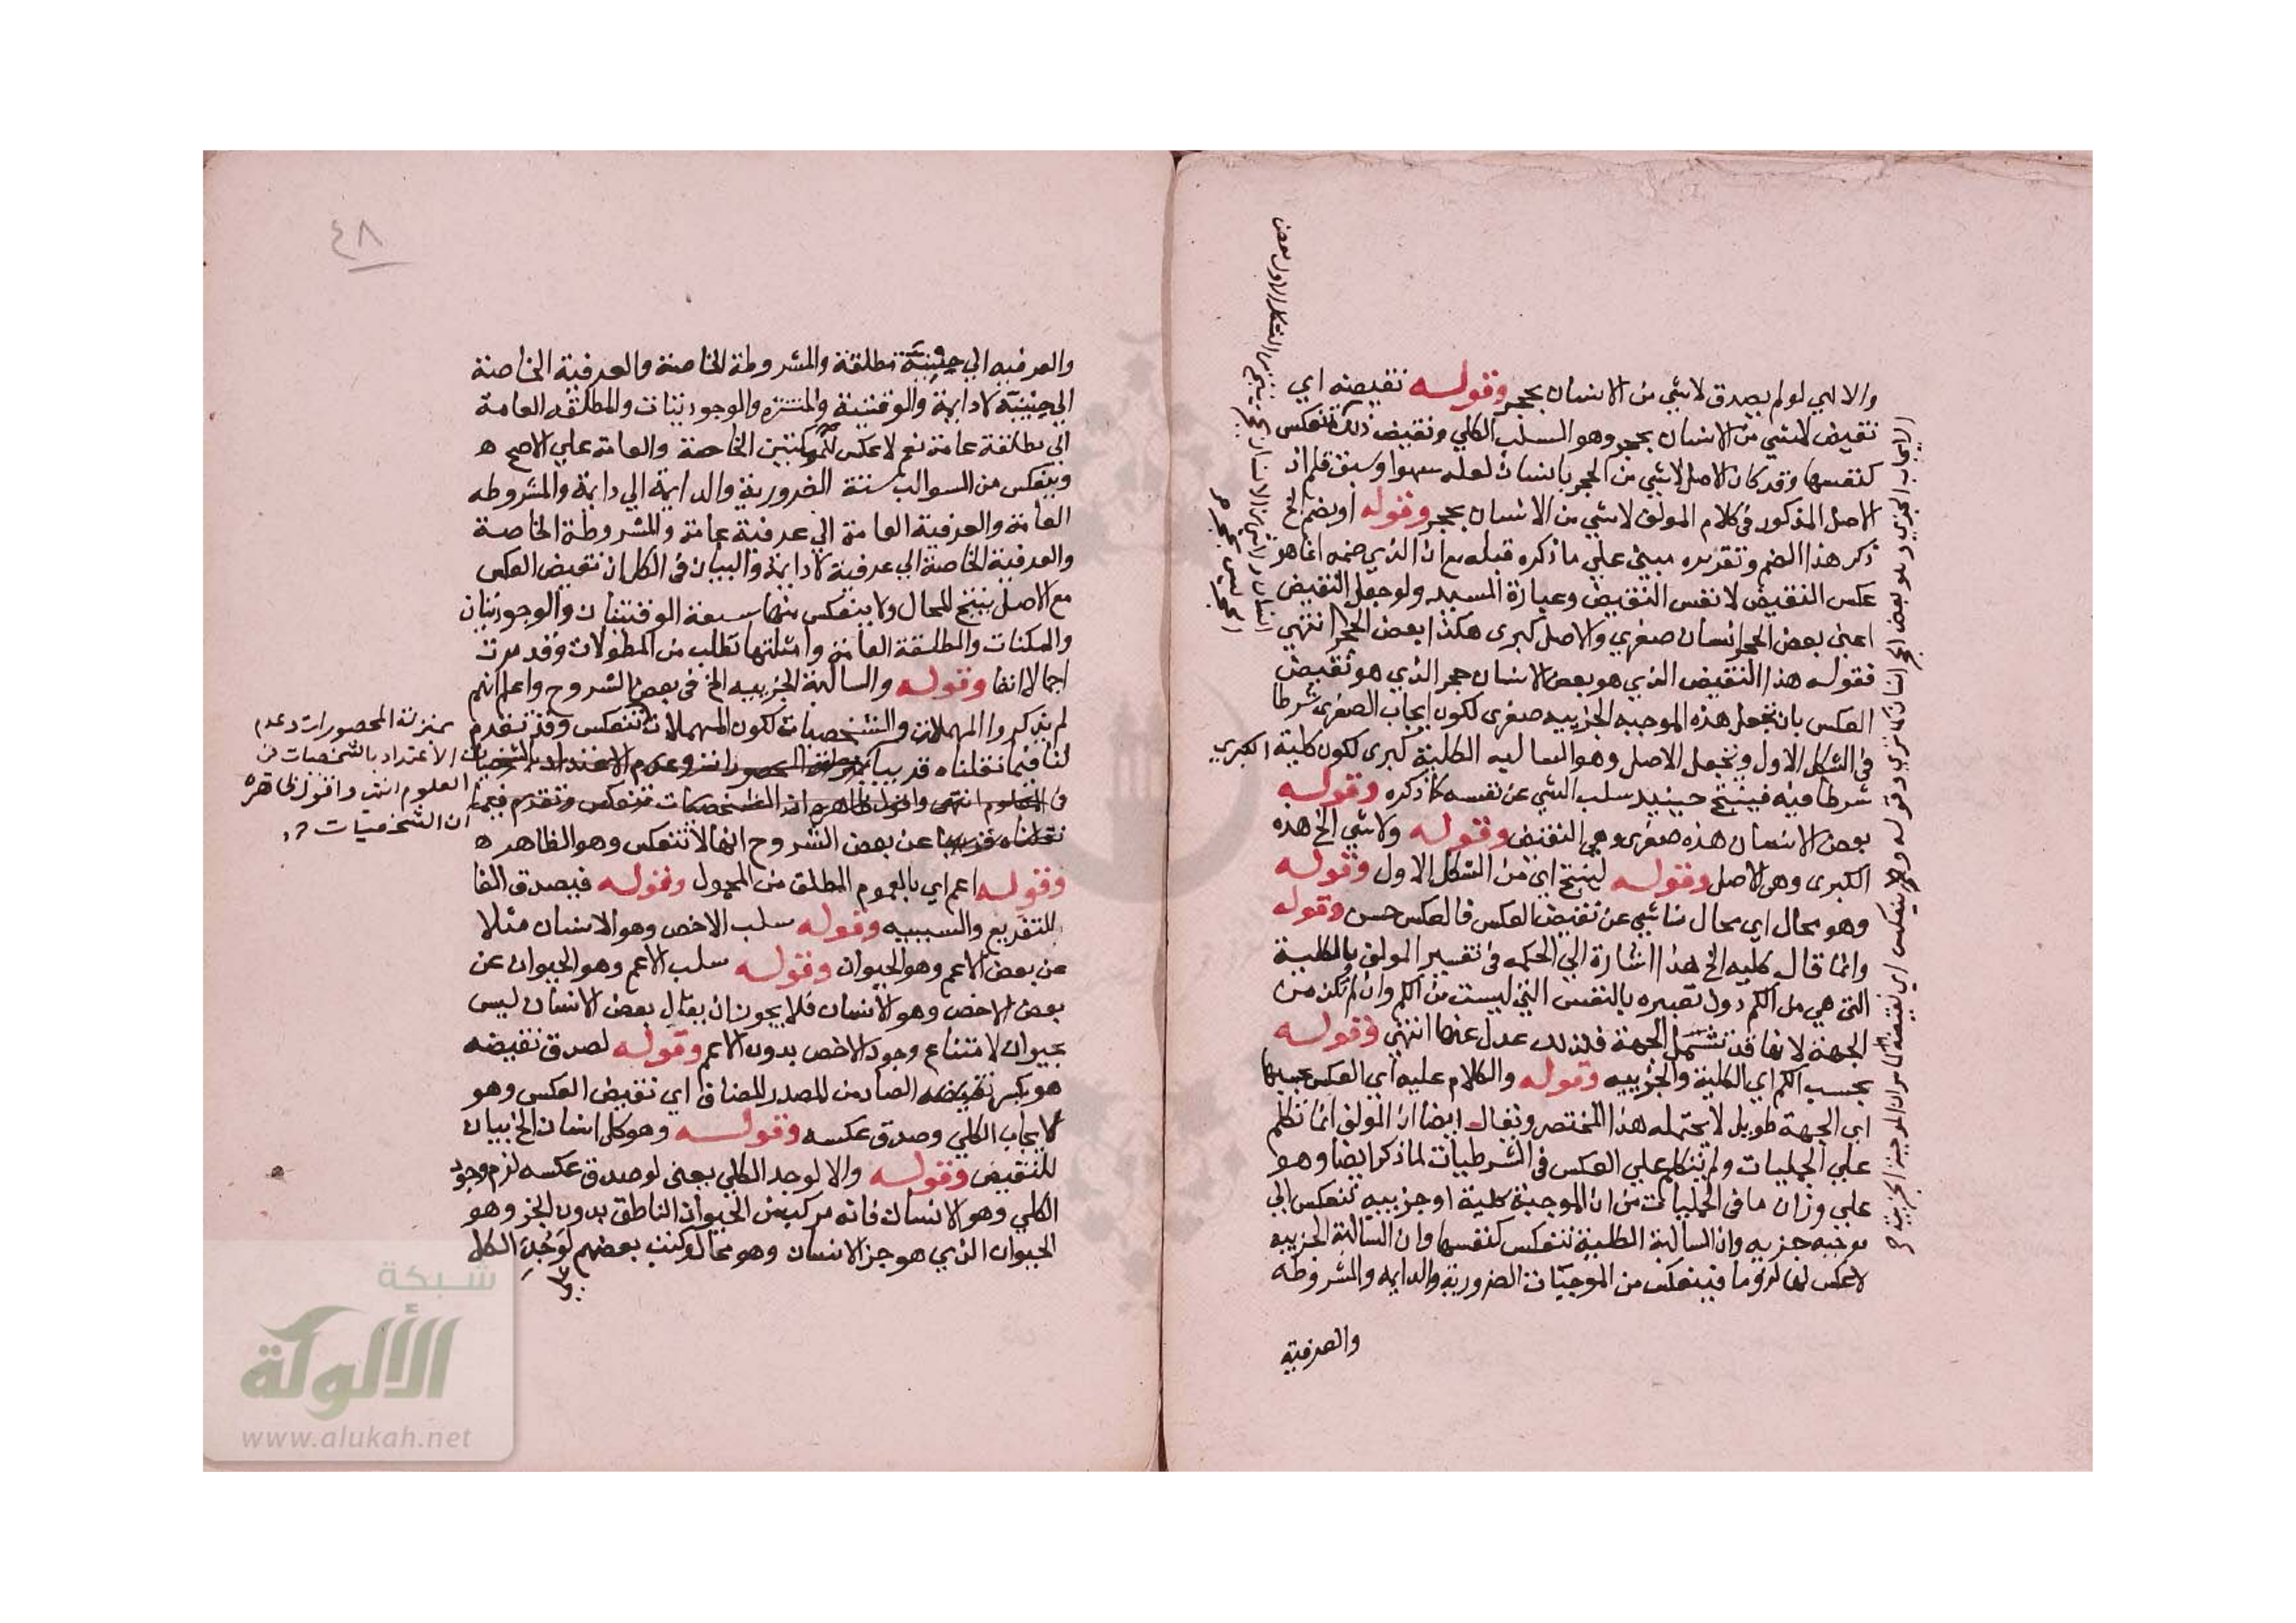 والا اي لو لم يصدق لا شي من الانسان بحجر وقوله نقيضه اي
نقيض لا شي من الانسان بحجر وهو السلب الكلي ونقيض ذلك تنعكس
كنفسها وقد كان الاصل لا شي من الحجر بانسان لعله سهوا وسبق قلم اذ
الاصل المذكور في كلام المولف لا شي من الانسان بحجر وقوله او يضم الخ
ذكر هذا الضم وتقريره مبني علي ما ذكره قبله مع ان الذي ضمه انما هو
عكس النقيض لا نفس النقيض وعبارة السيد ولو جعل النقيض
اعني بعض الحجر انسان صغري والاصل كبري هكذا بعض الحجر انتهي
فقوله هذا النقيض الذي هو بعض الانسان حجر الذي هو نقيض
العكس بان تجعل هذه الموجبه الجزييه صغري لكون ايجاب الصغري شرطا
في الشكل الاول وتجعل الاصل وهو السالبه الكلية كبري لكون كلية الكبري
شرطا فيه فينتج حينيذ سلب الشي عن نفسه كما ذكره وقوله
بعض الانسان هذه صغري وهي النقيض وقوله ولا شي الخ هذه
الكبري وهي الاصل وقوله لينتج اي من الشكل الاول وقوله
وهو محال اي محال ناشي عن نقيض العكس فالعكس حسن وقوله
وانما قال كليه الخ هذا اشارة الي الحكمه في تفسير المولف بالكلية
التي هي من الكم دون تعبيره بالنفس التي ليست من الكم وان لم تكن من
الجهة لانها قد تشمل الجهة فلذلك عدل عنها انتهي وقوله
بحسب الكم اي الكلية والجزييه وقوله والكلام عليه اي العكس بحسبها
اي الجهة طويل لا يحتمله هذا المختصر ويقال ايضا ان المولف انما تكلم
علي الحمليات ولم يتكلم علي العكس في الشرطيات لما ذكر ايضا وهو
علي وزان ما في الحمليات من ان الموجبة كلية او جزييه تنعكس الي
موجبه جزيه وان السالبة الكلية تنعكس كنفسها وان السالبة الجزييه
لا عكس لها لزوما فينعكس من الموجبات الضرورية والدايمه والمشروطه
والعرفية
والعرفيه الي حينية مطلقة والمشروطة الخاصة والعرفية الخاصة
الي حينية لا دايمة والوقتية والمنتشره والوجوديتان والمطلقه العامة
الي مطلقة عامة نعم لا عكس للممكنتين الخاصة والعامة علي الاصح ه
وينعكس من السوالب ستة الضرورية والدايمة الي دايمة والمشروطه
العامة والعرفية العامة الي عرفية عامة والمشروطة الخاصة
والعرفية الخاصة الي عرفية لا دايمة والبيان في الكل ان نقيض العكس
مع الاصل ينتج المحال ولا ينعكس منها سبعة الوقتيتان والوجوديتان
والممكنات والمطلقة العامة وامثلتها تطلب من المطولات وقد مرت
اجمالا انفا وقوله والسالبة الجزييه الخ في بعض الشروح واعلم انهم
لم يذكروا المهملات والشخصيات لكون المهملات تنعكس وقد تقدم
لنا فيما نقلناه قريبا
بمنزلة المحصورات وعدم
الاعتداد بالشخصيات في
العلوم انتهي واقول ظاهره
ان الشخصيات
عن بعض الشروح انها لا تنعكس وهو الظاهر ه
وقوله اعم اي بالعموم المطلق من المحمول وقوله فيصدق الفا
للتفريع والسببيه وقوله سلب الاخص وهو الانسان مثلا
عن بعض الاعم وهو الحيوان وقوله سلب الاعم وهو الحيوان عن
بعض الاخص وهو الانسان فلا يجوز ان يقال بعض الانسان ليس
بحيوان لامتناع وجود الاخص بدون الاعم وقوله لصدق نقيضه
هو بكسر الضاد من المصدر المضاف اي نقيض العكس وهو
الايجاب الكلي وصدق عكسه وقوله وهو كل انسان الخ بيان
للنقيض وقوله والا لوجد الكلي يعني لو صدق عكسه لزم وجود
الكلي وهو الانسان فانه مركب من الحيوان الناطق بدون الجز وهو
الحيوان الذي هو جز الانسان وهو محال وكتب بعضهم لوجد الكل
٤٨
شبكة
الألوكة
www.alukah.net